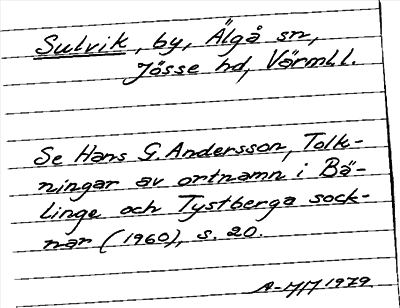 Sulvik, by, Älgå sn,
Jösse hd, Värml l.
Se Hans G. Andersson, Tolk-
ningar av ortnamn i Bä-
linge och Tystberga sock-
nar (1960), s. 20.
1979